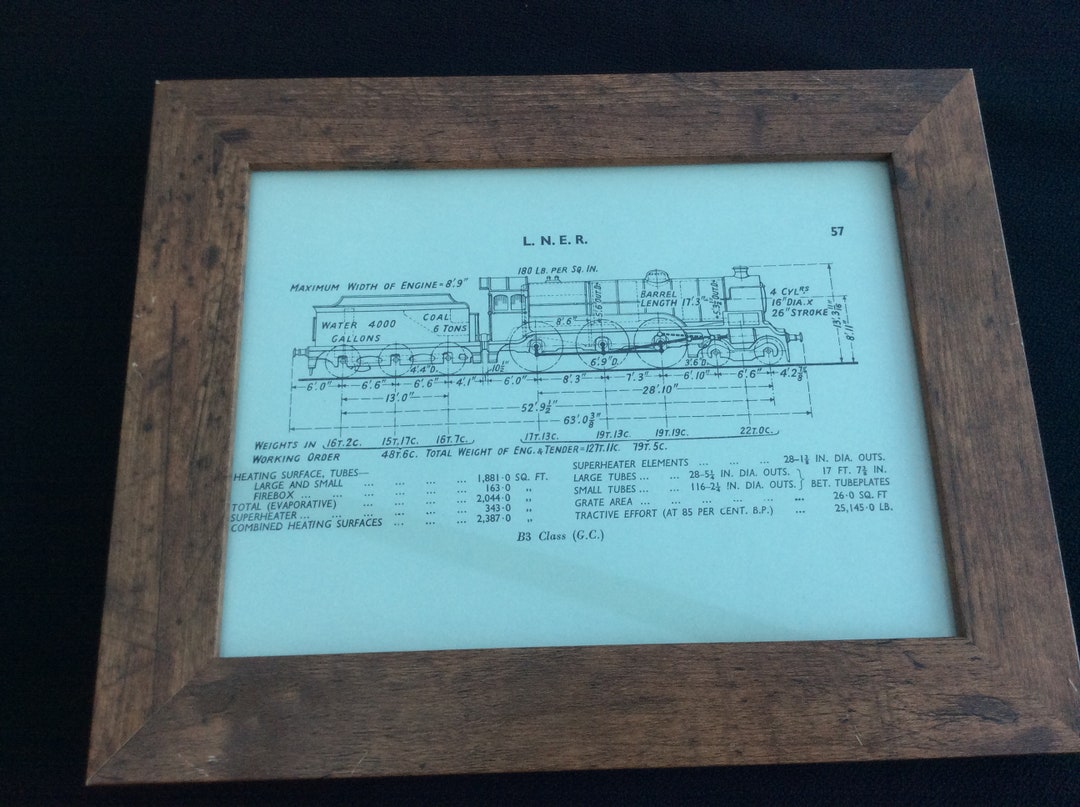 L. N. E. R.
57
180 LB. PER SQ. IN.
MAXIMUM WIDTH OF ENGINE = 8'.9"
BARREL
LENGTH 17'.3"
4 CYLRS
16" DIA. X
26" STROKE
WATER 4000
GALLONS
COAL
6 TONS
8'.6"
5'.6" OUT.D.
13'.3
8'.11"
4'.4" D.
10½"
6'.9" D.
3'.6" D.
6'.0" 6'.6" 6'.6" 4'.1" 6'.0" 8'.3" 7'.3" 6'.10" 6'.6" 4'.2⅞"
13'.0" 28'.10"
52'.9½"
63'.0⅜"
WEIGHTS IN 16T.2C. 15T.17C. 16T.7C. 17T.13C. 19T.13C. 19T.19C. 22T.0C.
WORKING ORDER 48T.6C. TOTAL WEIGHT OF ENG. & TENDER = 127T.11C. 79T.5C.
HEATING SURFACE, TUBES—
LARGE AND SMALL ... ... ... ... 1,881·0 SQ. FT.
FIREBOX ... ... ... ... ... 163·0 ,,
TOTAL (EVAPORATIVE) ... ... ... ... 2,044·0 ,,
SUPERHEATER ... ... ... ... ... 343·0 ,,
COMBINED HEATING SURFACES ... ... ... 2,387·0 ,,
SUPERHEATER ELEMENTS ... ... ... 28–1⅜ IN. DIA. OUTS.
LARGE TUBES ... ... 28–5¼ IN. DIA. OUTS. } 17 FT. 7¾ IN.
SMALL TUBES ... ... 116–2¼ IN. DIA. OUTS. } BET. TUBEPLATES
GRATE AREA ... ... ... ... ... ... 26·0 SQ. FT
TRACTIVE EFFORT (AT 85 PER CENT. B.P.) ... 25,145·0 LB.
B3 Class (G.C.)